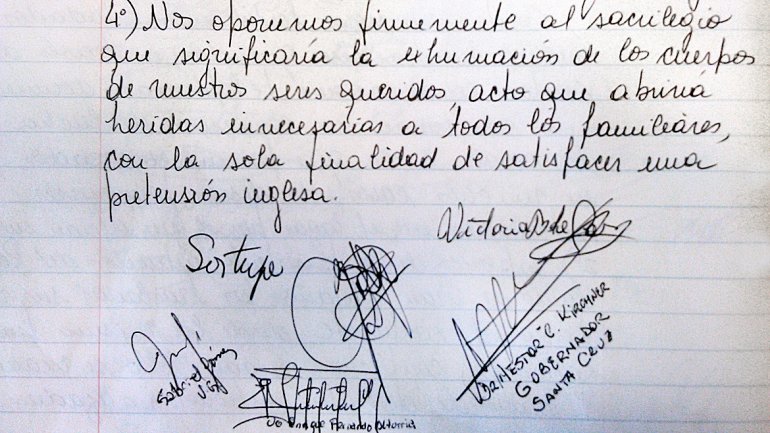 4º) Nos oponemos firmemente al sacrilegio
que significaría la exhumación de los cuerpos
de nuestros seres queridos, acto que abriría
heridas innecesarias a todos los familiares,
con la sola finalidad de satisfacer una
pretensión inglesa.
Victoria
Dr NESTOR C. KIRCHNER
GOBERNADOR
SANTA CRUZ
Gabriel
Enrique Fernando